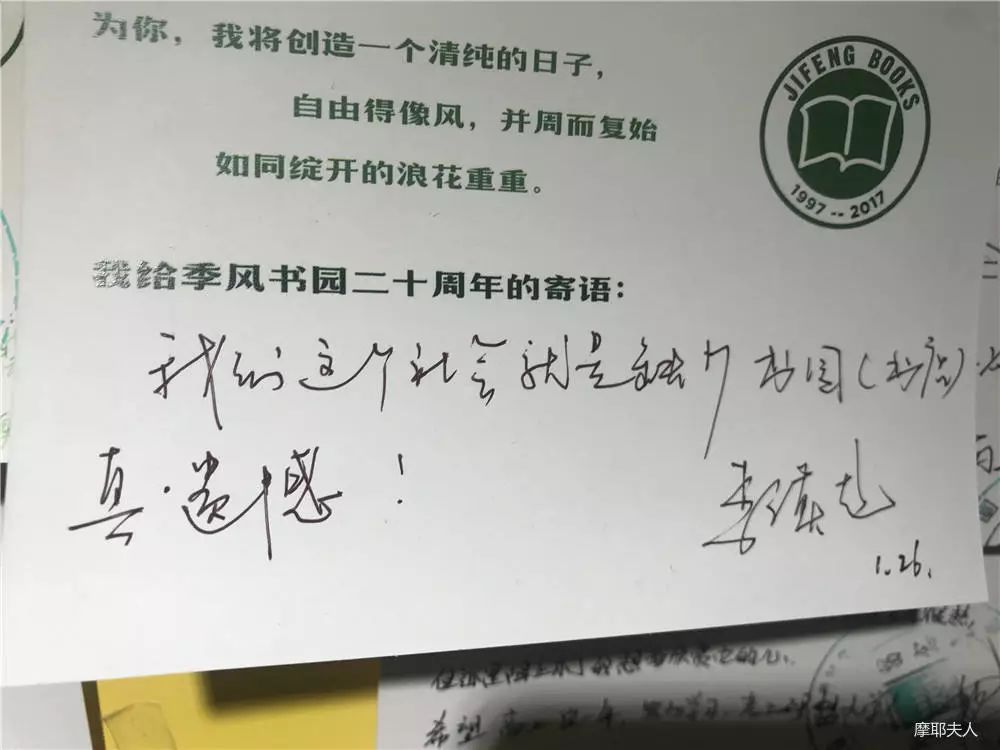 为你，我将创造一个清纯的日子，
自由得像风，并周而复始
如同绽开的浪花重重。
JIFENG BOOKS
1997 -- 2017
我给季风书园二十周年的寄语：
我们这个社会就是缺个书园（书店）.
真.遗憾！
1.26.
希望
摩耶夫人